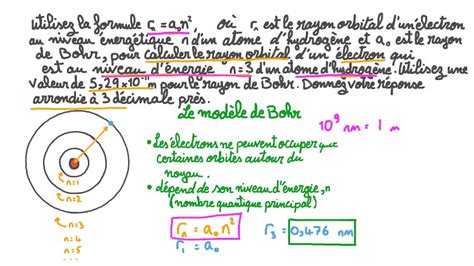 Utilisez la formule rₙ = a₀n², où rₙ est le rayon orbital d'un électron
au niveau énergétique n d'un atome d'hydrogène et a₀ est le rayon
de Bohr, pour calculer le rayon orbital d'un électron qui
est au niveau d'énergie n=3 d'un atome d'hydrogène. Utilisez une
valeur de 5,29×10⁻¹¹ m pour le rayon de Bohr. Donnez votre réponse
arrondie à 3 décimale près.
Le modèle de Bohr
10⁹ nm = 1 m
• Les électrons ne peuvent occuper que
certaines orbites autour du
noyau.
• dépend de son niveau d'énergie, n
(nombre quantique principal)
n=1
n=2
n=3
n=4
n=5
rₙ = a₀n²
r₁ = a₀
r₃ = 0,476 nm